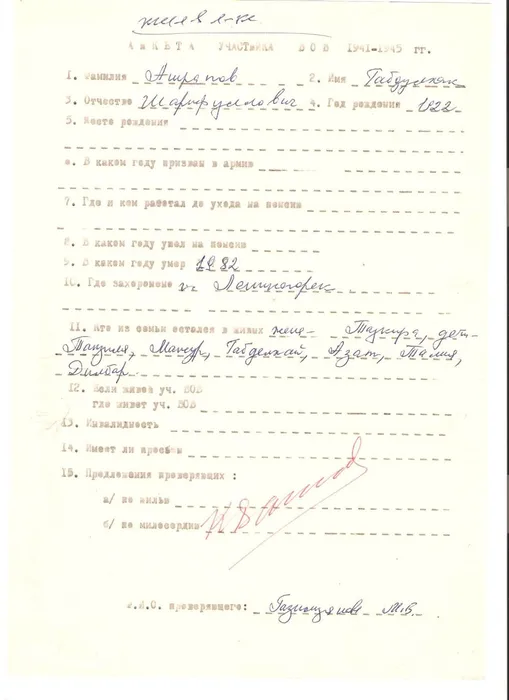 АНКЕТА УЧАСТНИКА ВОВ 1941-1945 гг.
1. Фамилия Ашрапов 2. Имя Габдулхак
3. Отчество Шарифуллович 4. Год рождения 1922
5. Место рождения
6. В каком году призван в армию
7. Где и кем работал до ухода на пенсию
8. В каком году ушел на пенсию
9. В каком году умер 1982
10. Где захоронен г. Лениногорск
11. Кто из семьи остался в живых жена - Тагира, дети-
Танзиля, Мансур, Габделхай, Азат, Талия,
Дилбар
12. Если живое уч. ВОВ
где живет уч. ВОВ
13. Инвалидность
14. Имеет ли просьбы
15. Предложения проверяющих :
а/ по жилью
б/ по милосердию
Ф.И.О. проверяющего: М.В.